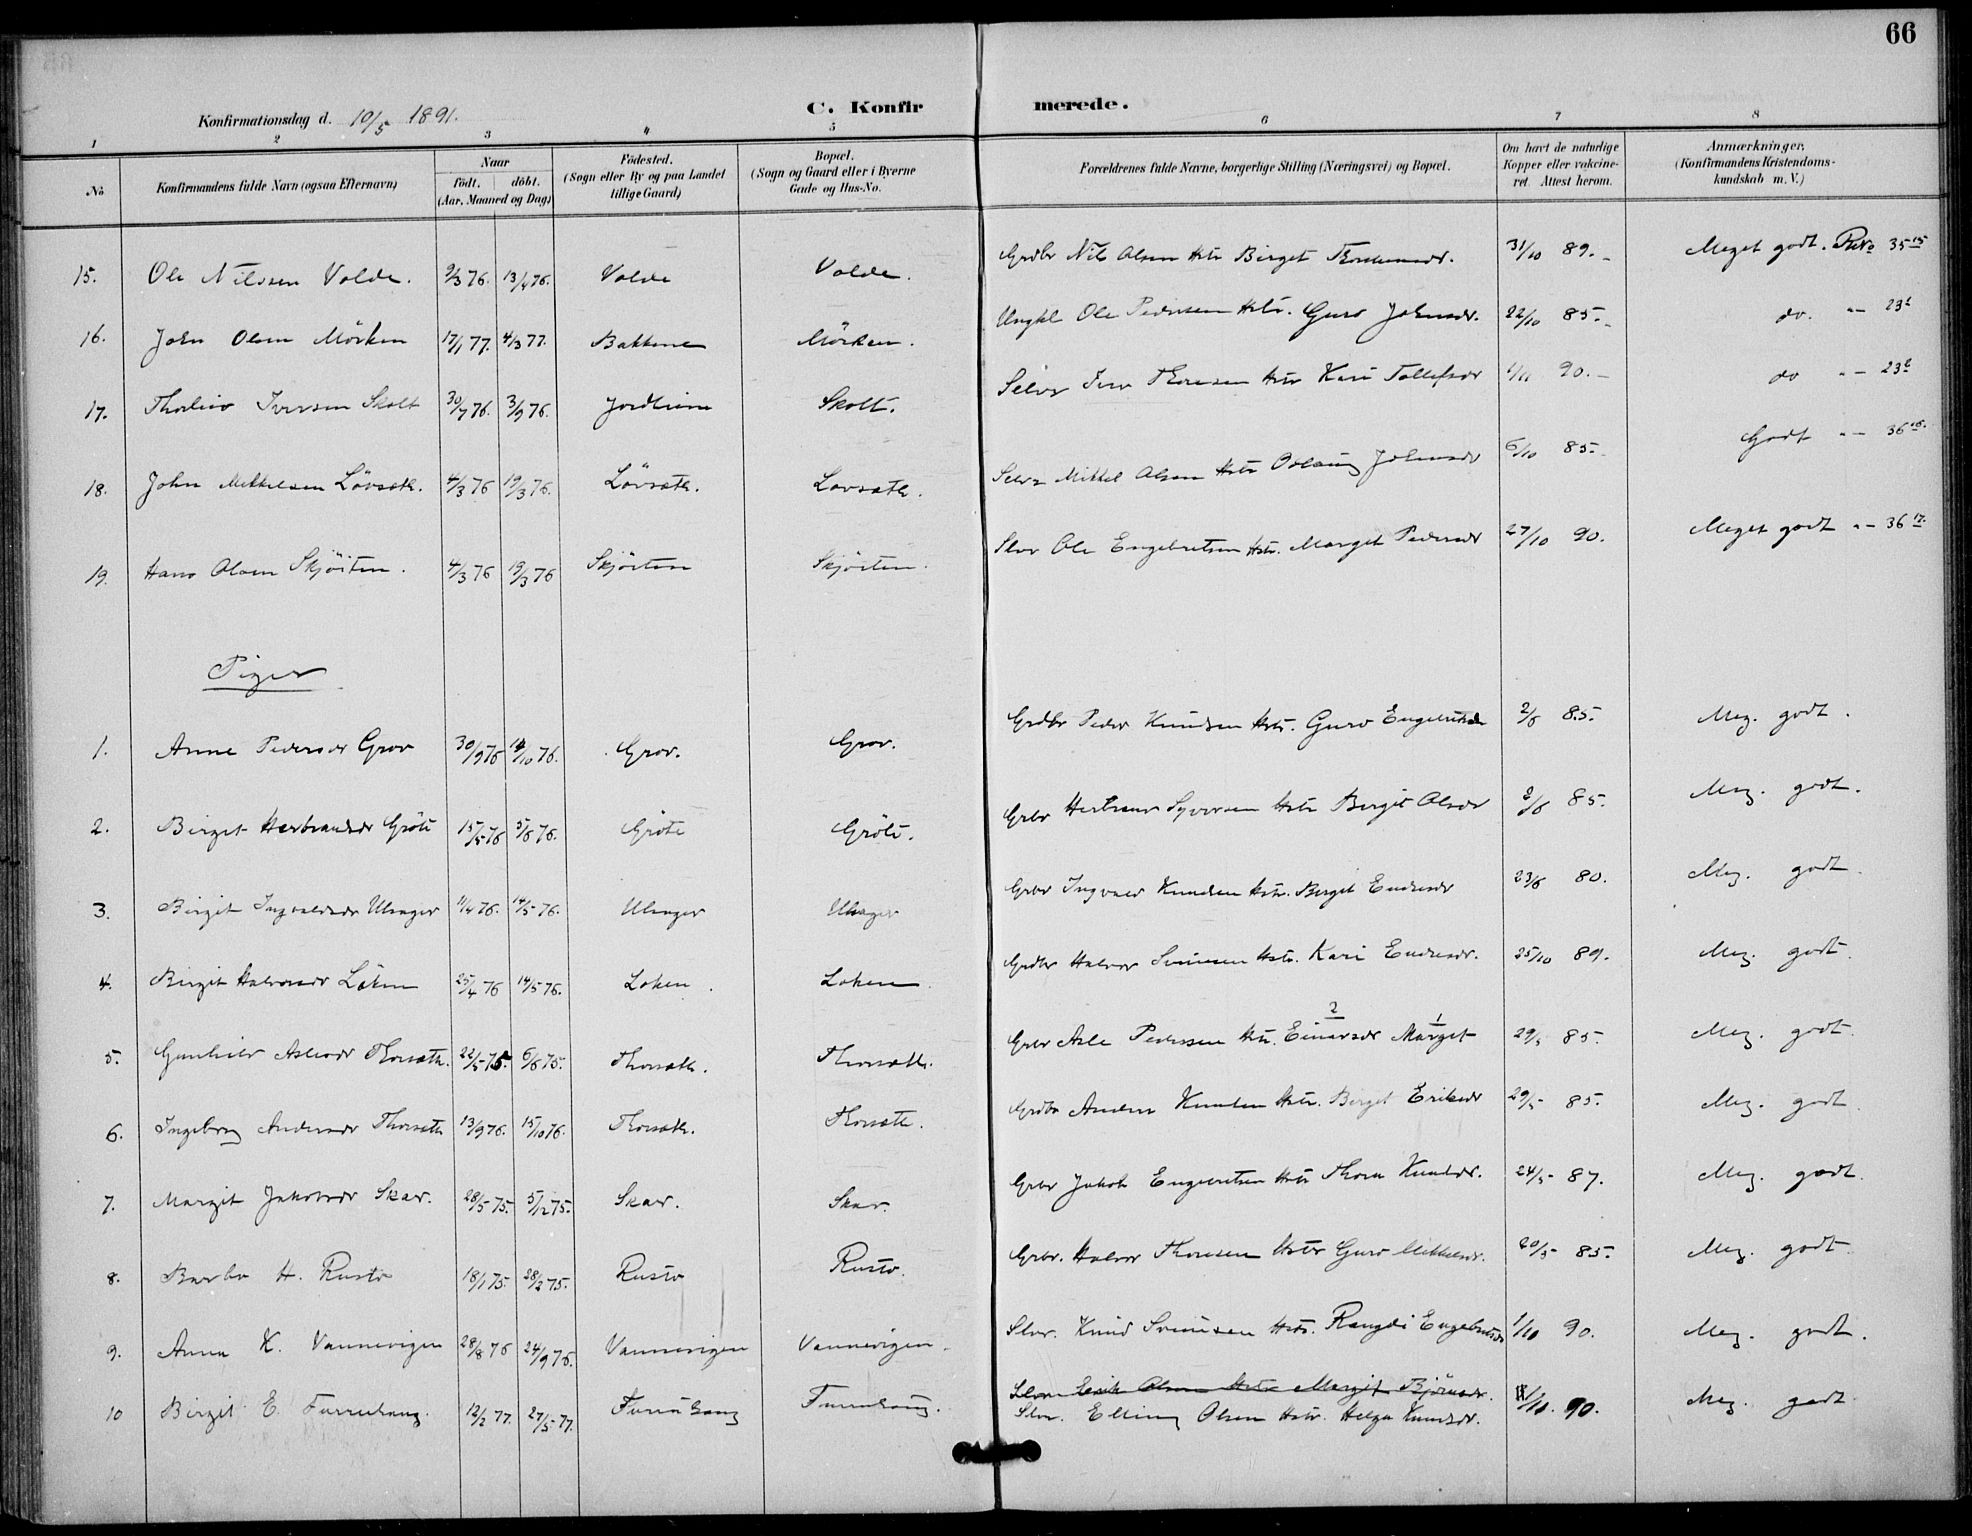 66
Konfirmationsdag d. 10/5 1891.
C. Konfirmerede.
1 2 3 4 5 6 7 8
No
Konfirmandens fulde Navn (ogsaa Efternavn)
Naar
födt. döbt.
(Aar, Maaned og Dag)
Födested.
(Sogn eller By og paa Landet
tillige Gaard)
Bopæl.
(Sogn og Gaard eller i Byerne
Gade og Hus-No.
Forældrenes fulde Navne, borgerlige Stilling (Næringsvei) og Bopæl.
Om havt de naturlige
Kopper eller vakcine-
ret. Attest herom.
Anmærkninger.
(Konfirmandens Kristendoms-
kundskab m. V.)
15. Ole Nilssen Volde. 9/3 76. 13/4 76. Volde Volde. Grdbr Nils Olsen Hstr Birget 31/10 89. Meget godt. 35 15
16. John Olsen Mörken 17/1 77. 4/3 77. Bakkene Mörken. Ungkl Ole Pedersen Hstr. Guro Johnsdr. 22/10 85. do. " 23
17. Iversen Skolt 30/7 76. 3/9 76. Skolt. Selve Iver Thoresen Hstr Kari Tollefsdr 1/11 90. do " 23
18. John Mikkelsen Lövsæth. 4/3 76 19/3 76. Lövsæth. Lovsæth. Selve Mikkel Olsen Hstr Johnsdr 6/10 85. Godt " 36
19. Hans Olsen Skjöiten. 4/3 76 19/3 76 Skjöiten Skjöiten. Slvr Ole Engebretsen Hstr. Marget Pedersdr 27/10 90. Meget godt " 36 17.
Piger
1. Anne Pedersdr Grov 30/9 76 /10 76. Grov. Grov. Grdbr Peder Knudsen Hstr. Guro 2/6 85. Meg. godt.
2. Birget Herbrandsdr Gröte 15/5 76 5/6 76. Gröte Gröte. Grbr Syversen Hstr Birgit Olsdr 2/6 85. Meg. godt.
3. Birgit Ingvaldsdr Ulsager 11/4 76. 14/5 76. Ulsager Ulsager Grbr Ingvald Knudsen Hstr. Birgit Endresdr 23/6 80. Meg. godt.
4. Birgit Halvorsdr Löken 25/4 76 14/5 76. Loken. Loken. Grdbr Halvor Svensen Hstr. Kari Endresdr. 25/10 89. Meg. godt.
2 1
5. Gunhild Aslesdr Thorsæth. 22/5 75. 6/6 75. Thorsæth. Thorsæth. Grbr Asle Pedersen Hstr. Einarsdr Marget 29/5 85. Meg. godt.
6. Ingeborg Andersdr Thorsæth 13/9 76. 15/10 76. Thorsæth. Thorsæth. Grdbr Anders Knudsen Hstr. Birget Eriksdr 29/5 85. Meg. godt.
7. Margit Jakobsdr Skar. 28/5 75. 5/12 75. Skar. Skar. Grbr Jakob Engebretsen Hstr Thora Knudsdr. 24/5 87. Meg. godt.
8. Barbo H. Rusto 18/1 75. 28/2 75. Rusto Rusto. Grbr. Halvor Thoresen Hstr Guro Mikkelsdr. 20/5 85. Meg. godt.
9. Anna K. Vannevigen 28/8 76 24/9 76. Vannevigen Vannevigen. Slvr. Knud Svensen Hstr. Rangdi Engebretsdr 1/10 90. Meg. godt.
Slvr Erik Olsen Hstr Margit Björnsdr.
10 Birgit E. Furruhaug. 12/2 77. 27/5 77. Furuhaug Furruhaug. Slvr. Elling Olsen Hstr. Helga Knudsdr. 1/10. 90. Meg. godt.